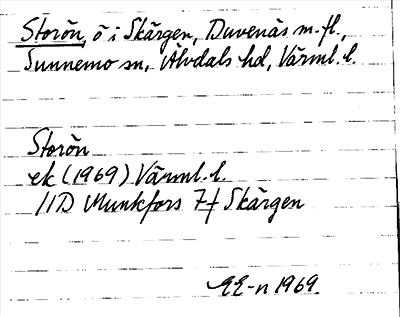 Storön, ö i Skärgen, Duvenäs m.fl.,
Sunnemo sn, Älvdals hd, Värml. l.
Storön
ek (1969) Värml. l.
11D Munkfors 7f Skärgen
EE-n 1969.